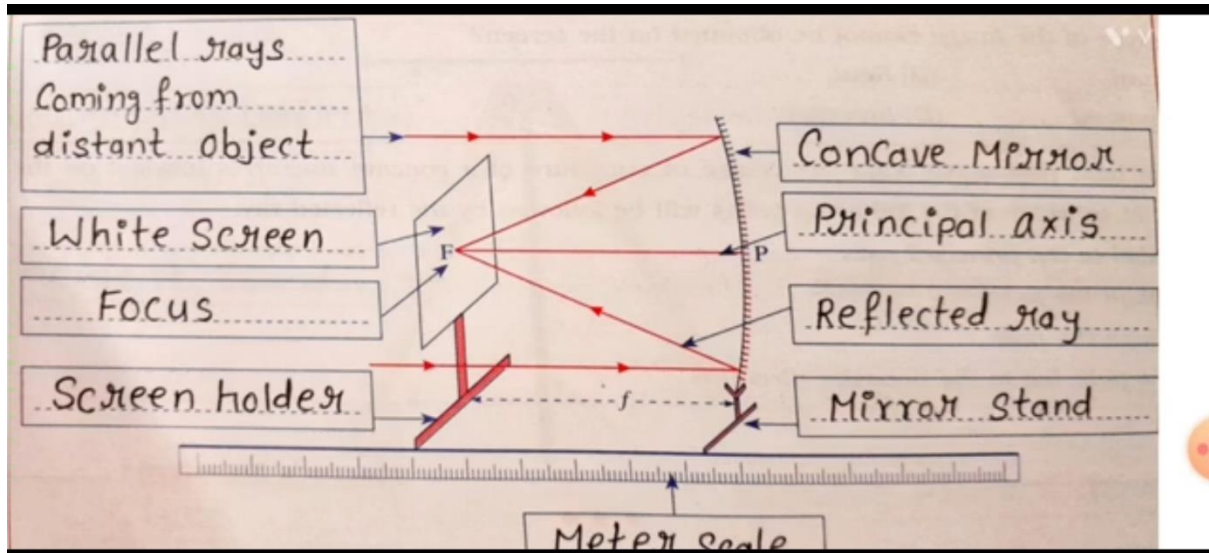 Parallel rays
Coming from
distant object
White Screen
Focus
Screen holder
Concave Mirror
Principal axis
Reflected ray
Mirror Stand
F
P
f
Meter scale